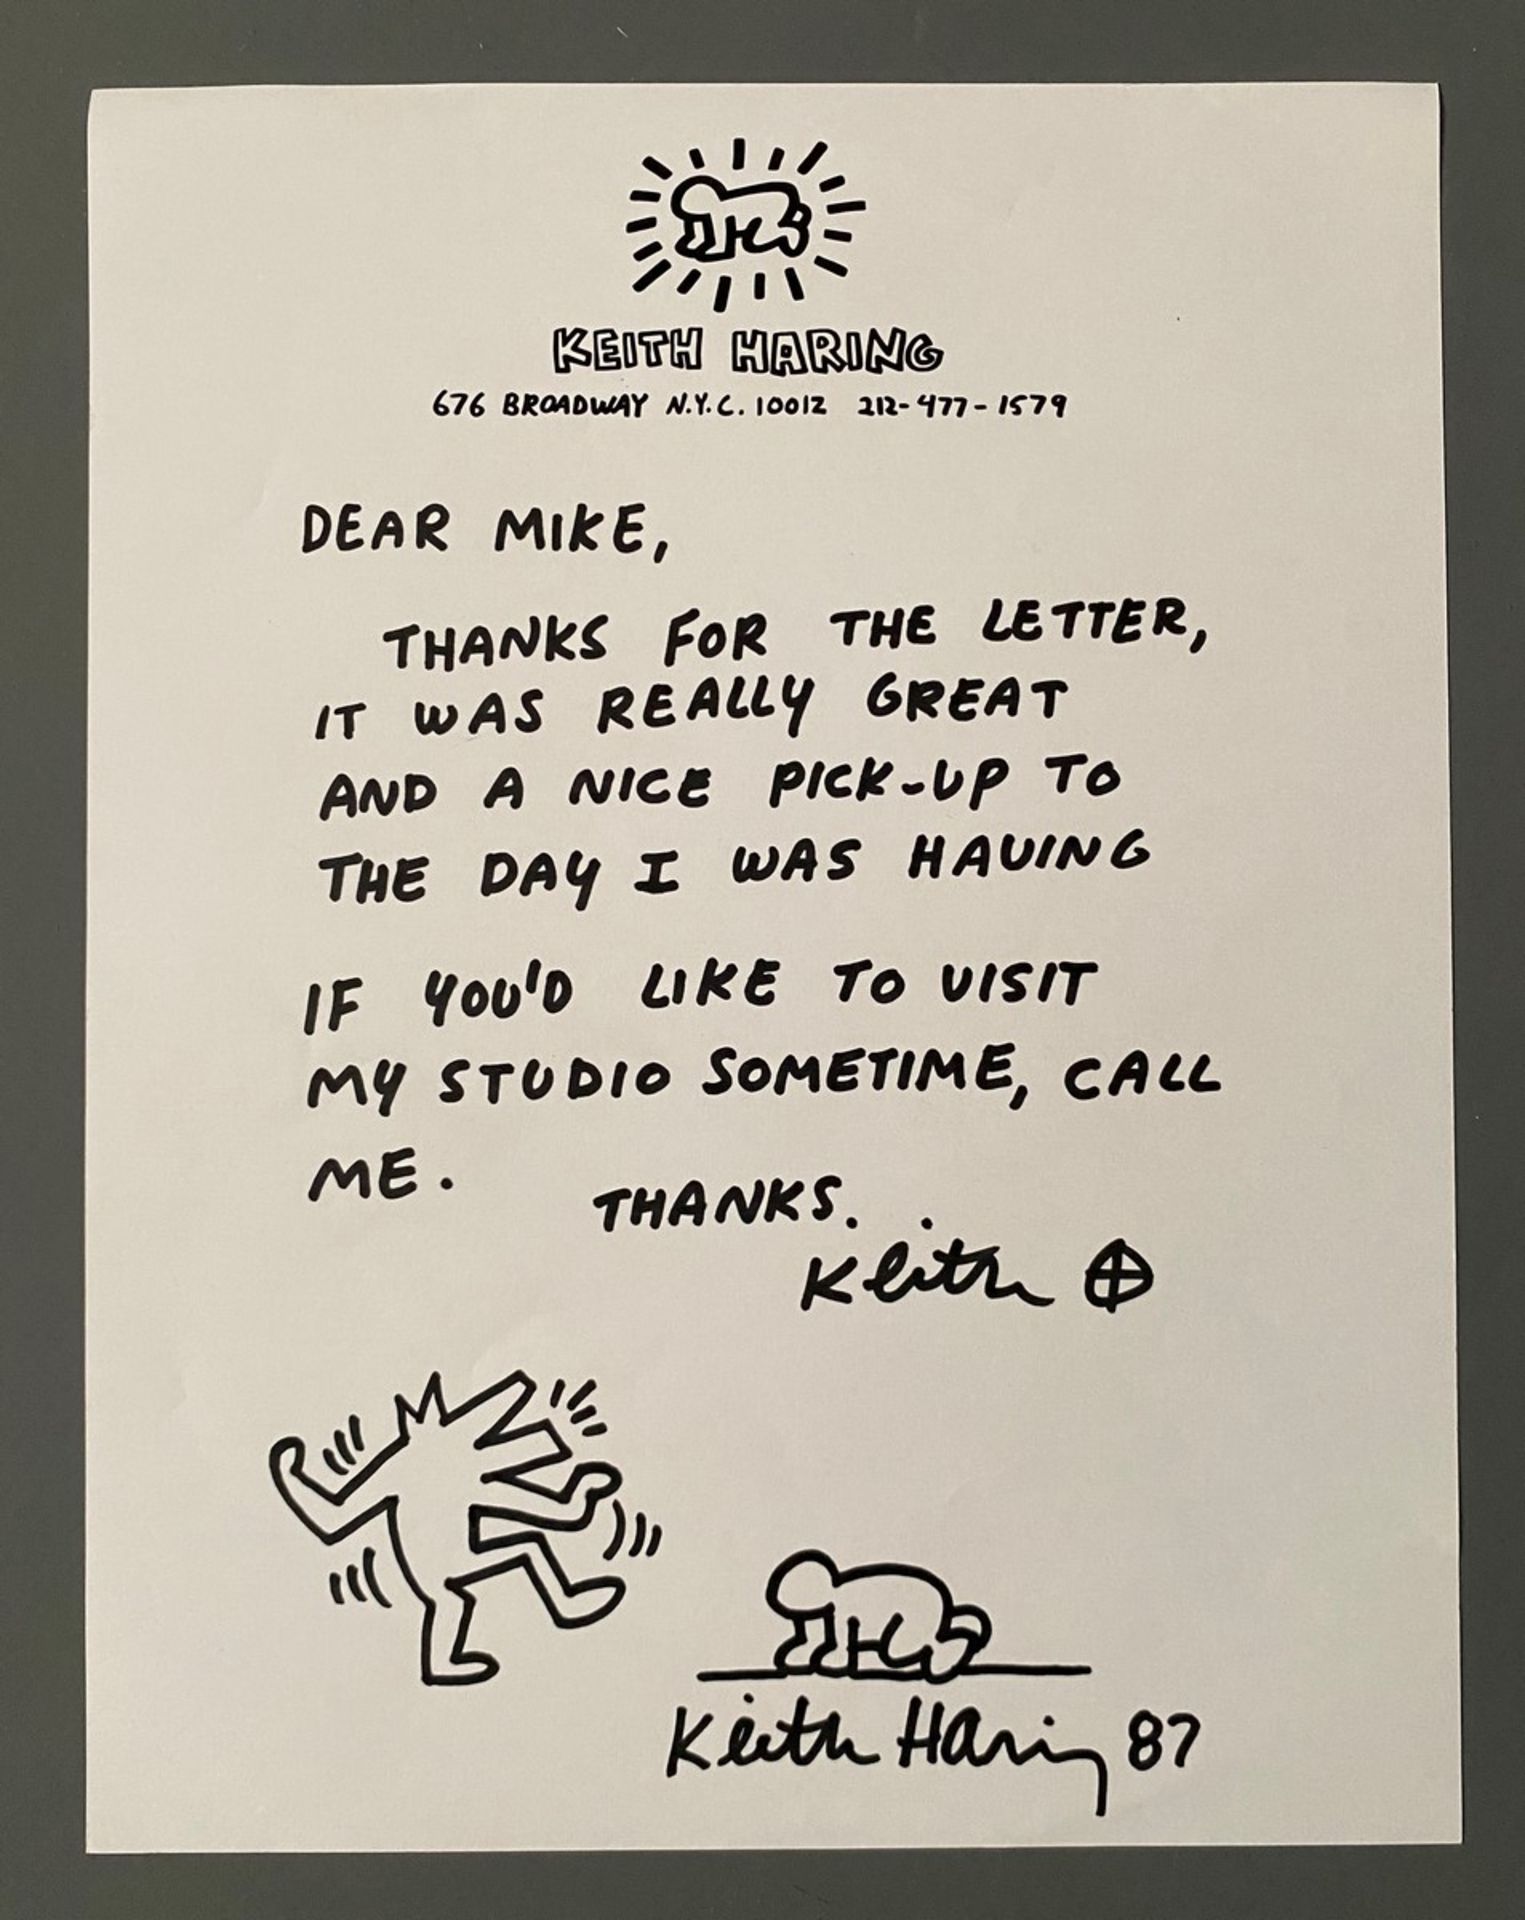 KEITH HARING
676 BROADWAY N.Y.C. 10012 212-477-1579
DEAR MIKE,
THANKS FOR THE LETTER,
IT WAS REALLY GREAT
AND A NICE PICK-UP TO
THE DAY I WAS HAVING
IF YOU'D LIKE TO VISIT
MY STUDIO SOMETIME, CALL
ME.
THANKS.
Keith
Keith Haring 87